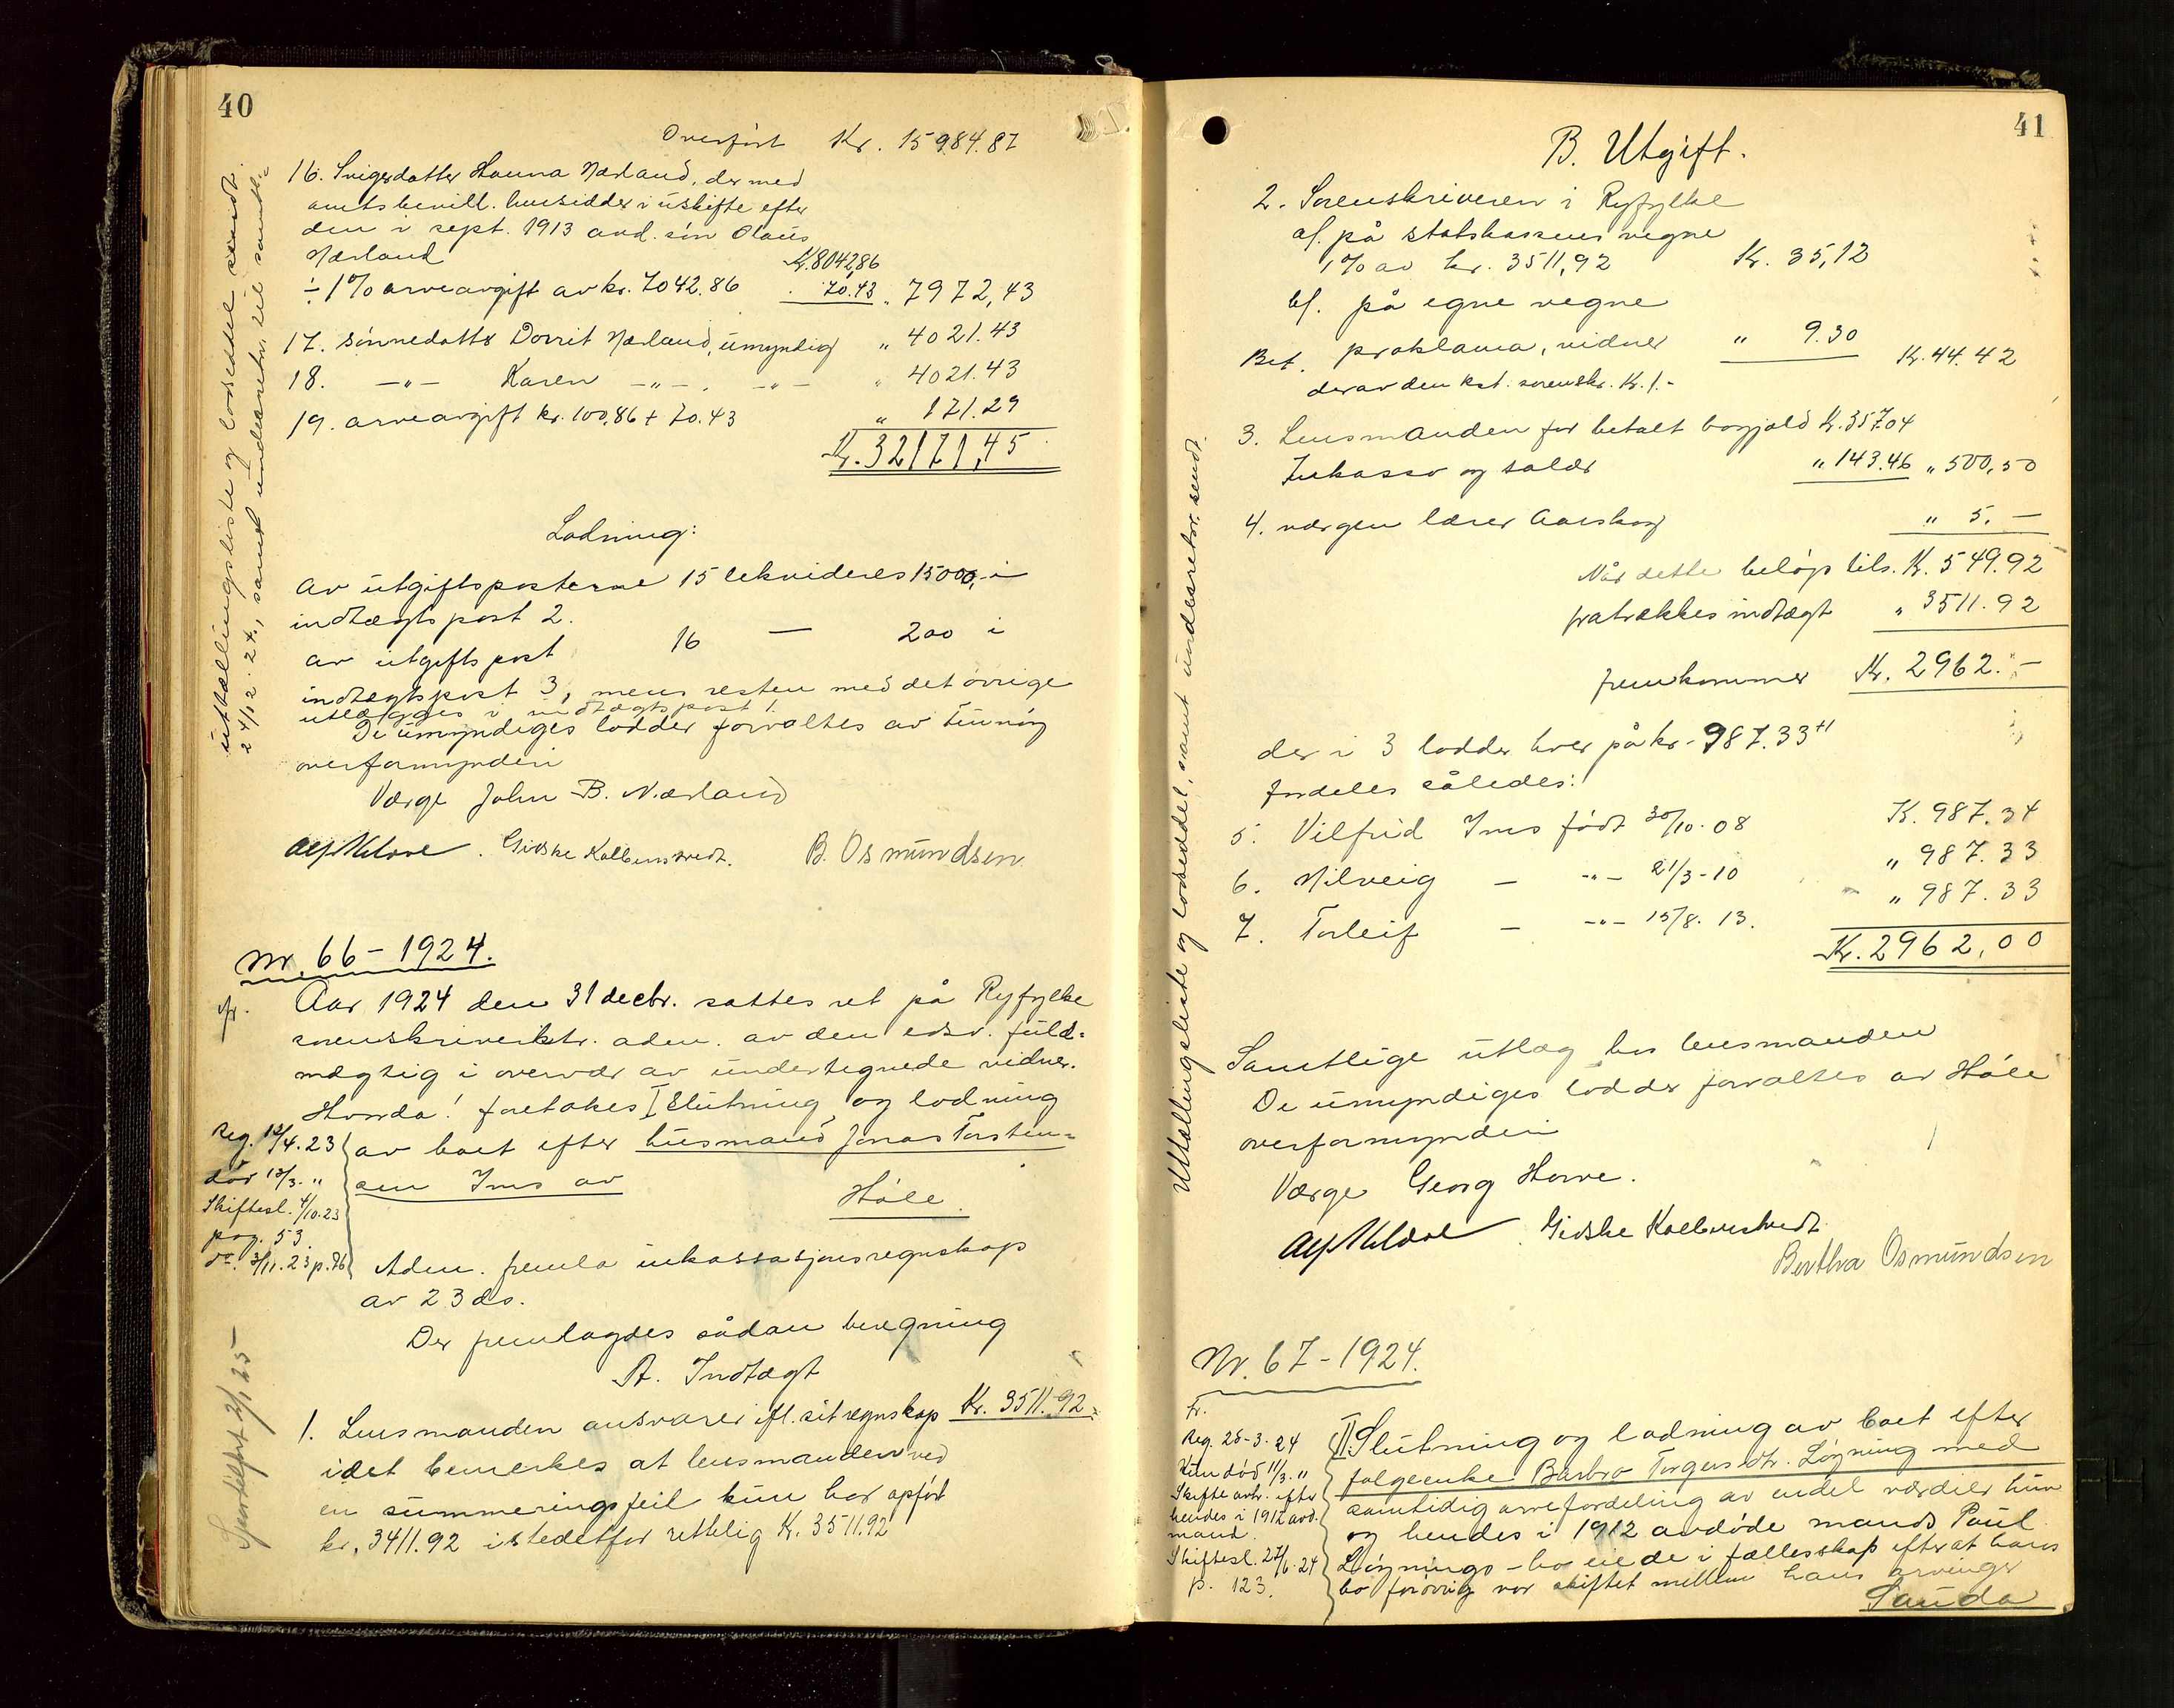 40
Overført Kr. 15984.87
16. Svigerdatter Hanna Nærland, der med
amtsbevill. hensidder i uskifte efter
den i sept. 1913 avd. søn Olaus
Nærland Kr. 8042,86
÷ 1% arveavgift av kr. 7042.86 . 70.43 „ 7972,43
17. sønnedatter Dorrit Nærland, umyndig „ 4021.43
18. -"- Karen -"-. -"- „ 4021.43
19. arveavgift kr. 100,86 + 70.43 „ 171.29
Kr. 32171,45
Lodning:
Av utgiftsposterne 15 lekvideres 15000,- i
indtægtspost 2.
av utgiftspost 16 — 200 i
indtægtspost 3, mens resten med det øvrige
utlægges i indtægtspost 1.
De umyndiges lodder forvaltes av
overformynderi
Værge John B. Nærland
Giske Kolbenstvedt. B. Osmundsen
uttællingsliste og lodseddel sendt
24/12. 24, samt underretn. til samtl.
Nr. 66 - 1924.
fr.
Aar 1924 den 31 decbr. sattes ret på Ryfylke
sorenskriverktr. adm. av den edsv. fuld=
mægtig i overvær av undertegnede vidner.
Hvorda! foretokes I Slutning og lodning
av boet efter husmand Jonas Torsten=
sen Ims av
Høle.
Reg. 12/4.23
død 13/3. "
Skiftesl. 4/10.23
pag. 53.
do. 3/11.23 p. 76
Adm. fremla inkassasjonsregnskap
av 23 ds.
Der fremlagdes sådan beregning
A. Indtægt
1. Lensmanden ansvarer ifl. sit regnskap Kr. 3511.92
idet bemerkes at lensmanden ved
en summeringsfeil kun har opført
kr. 3411.92 istedetfor rettelig Kr. 3511.92
2/1 25
41
B. Utgift.
2. Sorenskriveren i Ryfylke
a/. på statskassens vegne
1% av kr. 3511,92 Kr. 35,12
b/. på egne vegne
Bet. proklama, vidner " 9.30 Kr. 44.42
derav den kst. sorenskr. Kr. 1.-
3. Lensmanden for betalt bogjæld Kr. 357.04
Inkasso og salær " 143.46 " 500,50
4. værgen lærer Aarskog " 5.—
Når dette beløp tils. Kr. 549.92
fratrækkes indtægt " 3511.92
fremkommer Kr. 2962.-
der i 3 lodder hver på kr. 987.33 +1
fordeles således:
5. Vilfrid Ims født 30/10. 08 K. 987.34
6. Nilveig — -"- 21/3-10 " 987.33
7. Torleif — -"- 15/8. 13. " 987.33
Kr. 2962,00
Samtlige utlæg hos lensmanden
De umyndiges lodder forvaltes av Høle
overformynderi
Værge Georg Horve.
Giske Kolbenstvedt
Bertha Osmundsen
Uttællingsliste og lodseddel, samt underretn. sendt.
Nr. 67 - 1924.
Fr.
II Slutning og lodning av boet efter
føgeenke Barbro Torgersdtr. Løyning med
samtidig arvefordeling av endel værdier hun
og hendes i 1912 avdøde mands Paul
Løynings-bo eiede i fællesskap efter at hans
bo forøvrig var skiftet mellem hans arvinger
Sauda
Reg. 28-3-24
Kun død 11/3. "
Skifte avh. efter
hendes i 1912 avd.
mand.
Skiftesl. 27/6. 24
p. 123.